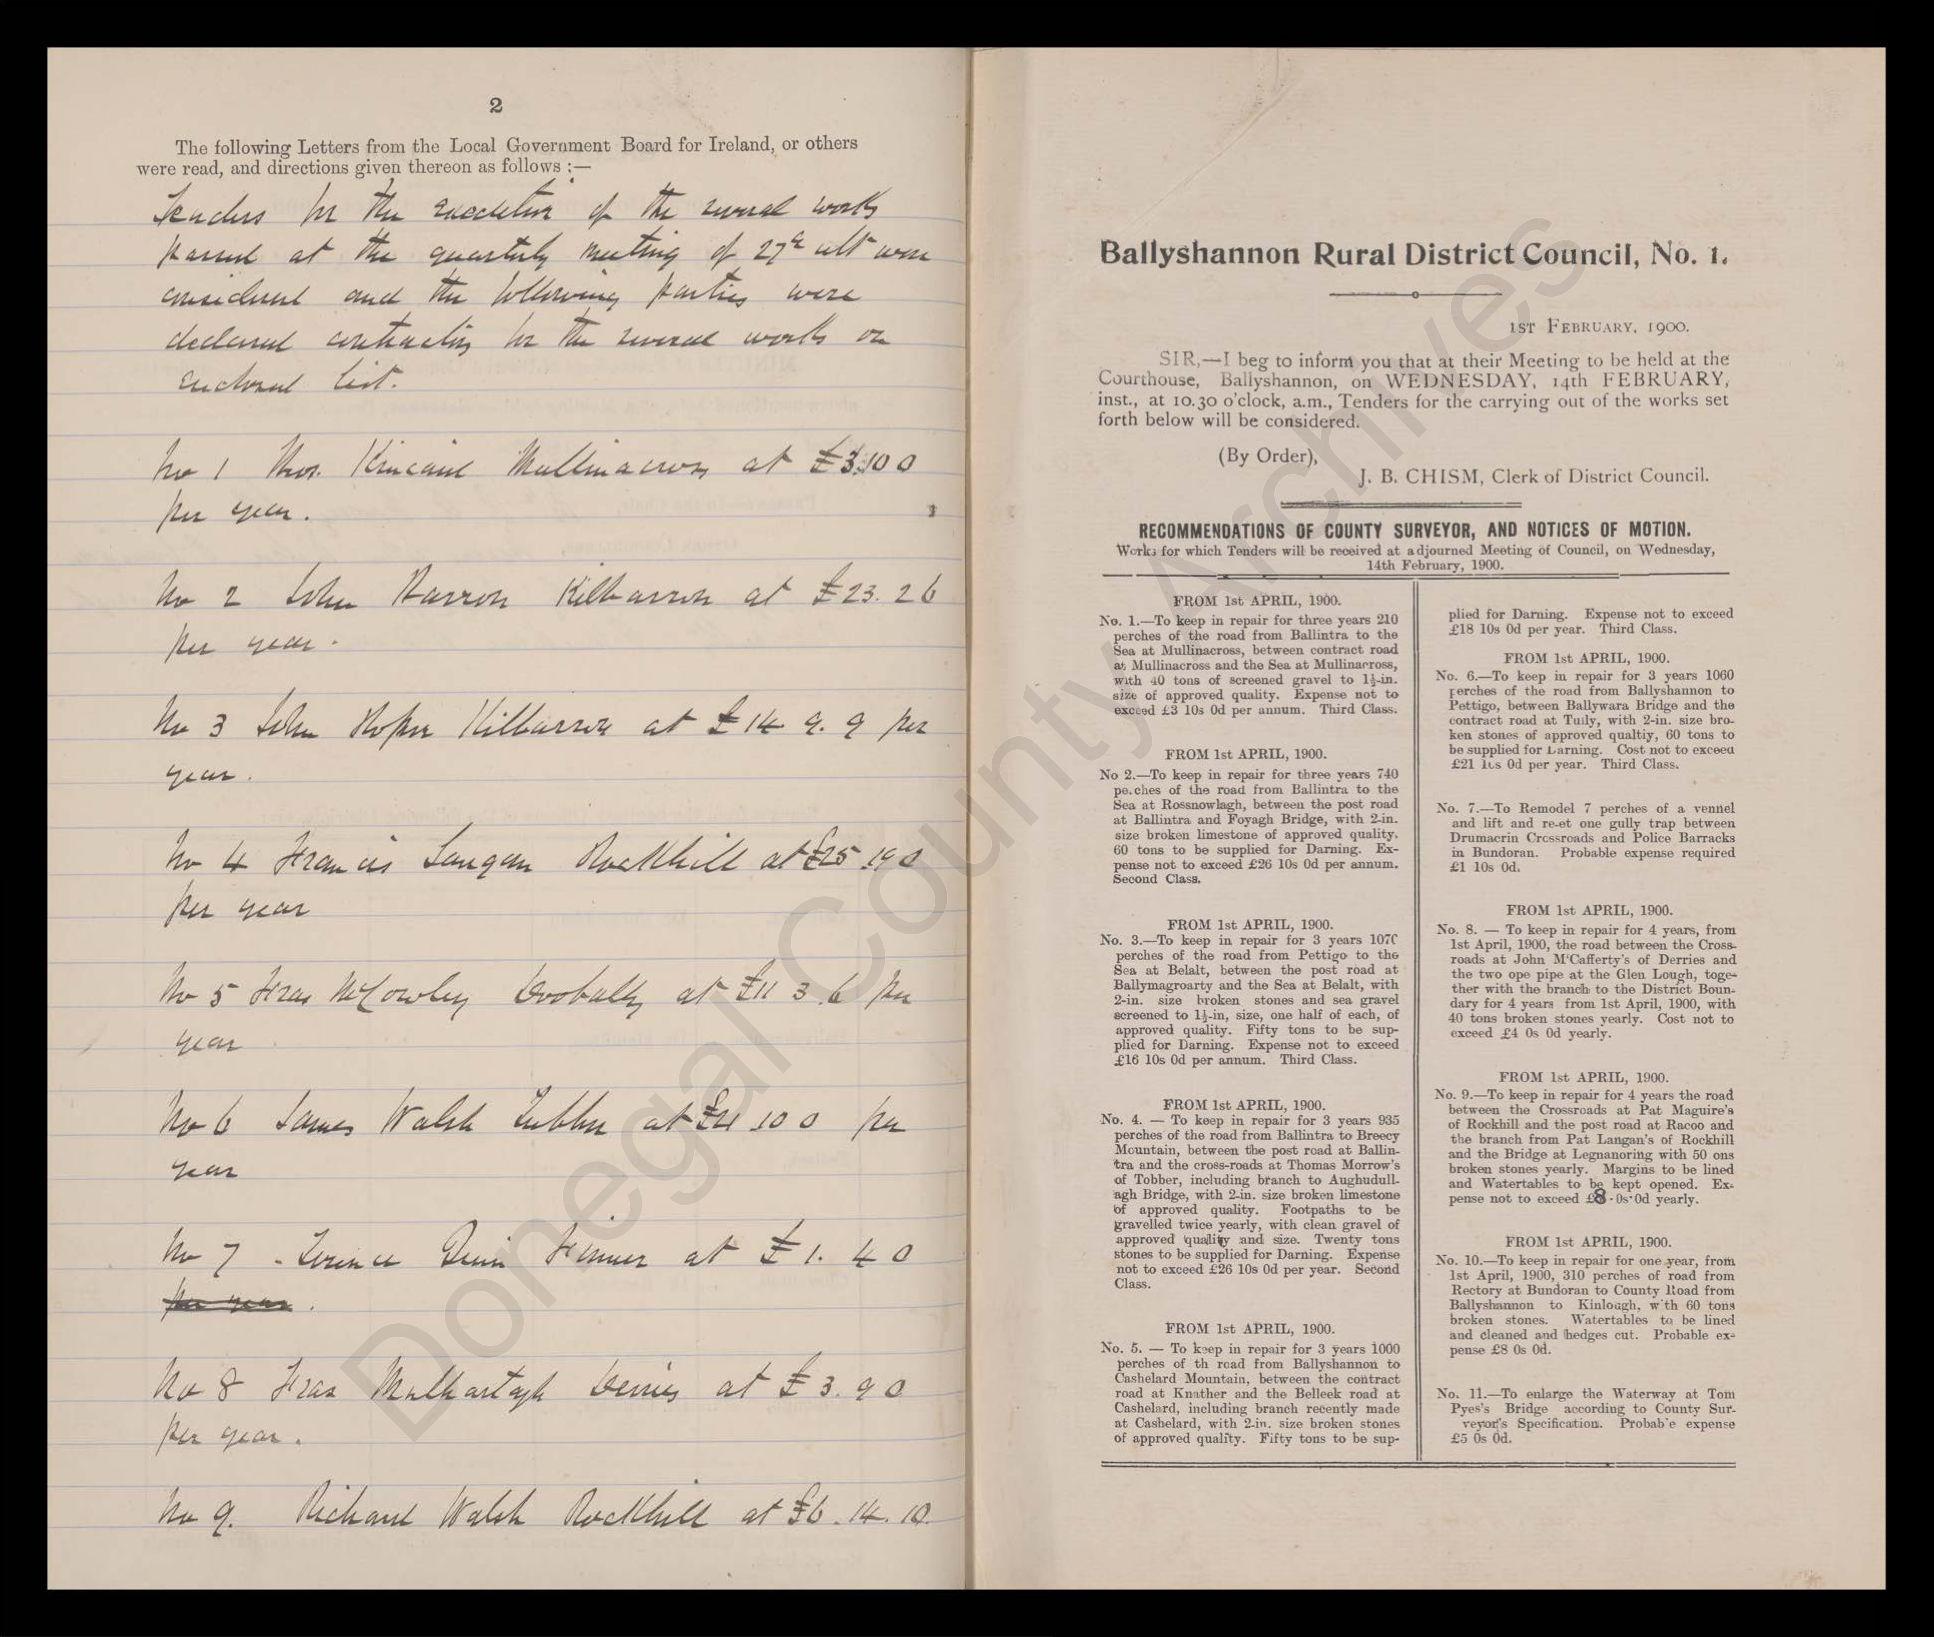 2
The following Letters from the Local Government Board for Ireland, or others
were read, and directions given thereon as follows :—
Tenders for the execution of the several works
passed at the quarterly meeting of 27th ult were
considered and the following parties were
declared contractors for the several works on
enclosed list.
No 1 Thos. Kincaid Mullinacross at £3.10 0
per year.
No 2 John Harron Kilbarron at £23. 2 6
per year.
No 3 John Roper Kilbarron at £14 9. 9 per
year.
No 4 Francis Langan Rockhill at £25.19 0
per year
No 5 Fras McCowley at £11 3 6 per
year
No 6 James Walsh at £21 10 0 per
year
No 7 - Terence Finner at £1. 4 0
per year.
No 8 Fras Derries at £3. 9 0
per year.
No 9. Richard Walsh Rockhill at £6. 14. 10.
Ballyshannon Rural District Council, No. 1.
1ST FEBRUARY, 1900.
SIR,—I beg to inform you that at their Meeting to be held at the
Courthouse, Ballyshannon, on WEDNESDAY, 14th FEBRUARY,
inst., at 10.30 o'clock, a.m., Tenders for the carrying out of the works set
forth below will be considered.
(By Order),
J. B. CHISM, Clerk of District Council.
RECOMMENDATIONS OF COUNTY SURVEYOR, AND NOTICES OF MOTION.
Works for which Tenders will be received at adjourned Meeting of Council, on Wednesday,
14th February, 1900.
FROM 1st APRIL, 1900.
No. 1.—To keep in repair for three years 210
perches of the road from Ballintra to the
Sea at Mullinacross, between contract road
at Mullinacross and the Sea at Mullinacross,
with 40 tons of screened gravel to 1½-in.
size of approved quality. Expense not to
exceed £3 10s 0d per annum. Third Class.
FROM 1st APRIL, 1900.
No 2.—To keep in repair for three years 740
pe.ches of the road from Ballintra to the
Sea at Rossnowlagh, between the post road
at Ballintra and Foyagh Bridge, with 2-in.
size broken limestone of approved quality.
60 tons to be supplied for Darning. Ex-
pense not to exceed £26 10s 0d per annum.
Second Class.
FROM 1st APRIL, 1900.
No. 3.—To keep in repair for 3 years 1070
perches of the road from Pettigo to the
Sea at Belalt, between the post road at
Ballymagroarty and the Sea at Belalt, with
2-in. size broken stones and sea gravel
screened to 1½-in, size, one half of each, of
approved quality. Fifty tons to be sup-
plied for Darning. Expense not to exceed
£16 10s 0d per annum. Third Class.
FROM 1st APRIL, 1900.
No. 4. — To keep in repair for 3 years 935
perches of the road from Ballintra to Breecy
Mountain, between the post road at Ballin-
tra and the cross-roads at Thomas Morrow's
of Tobber, including branch to Aughudull-
agh Bridge, with 2-in. size broken limestone
of approved quality. Footpaths to be
gravelled twice yearly, with clean gravel of
approved quality and size. Twenty tons
stones to be supplied for Darning. Expense
not to exceed £26 10s 0d per year. Second
Class.
FROM 1st APRIL, 1900.
No. 5. — To keep in repair for 3 years 1000
perches of th road from Ballyshannon to
Cashelard Mountain, between the contract
road at Knather and the Belleek road at
Cashelard, including branch recently made
at Cashelard, with 2-in. size broken stones
of approved quality. Fifty tons to be sup-
plied for Darning. Expense not to exceed
£18 10s 0d per year. Third Class.
FROM 1st APRIL, 1900.
No. 6.—To keep in repair for 3 years 1060
perches of the road from Ballyshannon to
Pettigo, between Ballywara Bridge and the
contract road at Tully, with 2-in. size bro-
ken stones of approved qualtiy, 60 tons to
be supplied for Darning. Cost not to exceed
£21 10s 0d per year. Third Class.
No. 7.—To Remodel 7 perches of a vennel
and lift and re-et one gully trap between
Drumacrin Crossroads and Police Barracks
in Bundoran. Probable expense required
£1 10s 0d.
FROM 1st APRIL, 1900.
No. 8. — To keep in repair for 4 years, from
1st April, 1900, the road between the Cross-
roads at John M'Cafferty's of Derries and
the two ope pipe at the Glen Lough, toge-
ther with the branch to the District Boun-
dary for 4 years from 1st April, 1900, with
40 tons broken stones yearly. Cost not to
exceed £4 0s 0d yearly.
FROM 1st APRIL, 1900.
No. 9.—To keep in repair for 4 years the road
between the Crossroads at Pat Maguire's
of Rockhill and the post road at Racoo and
the branch from Pat Langan's of Rockhill
and the Bridge at Legnanoring with 50 ons
broken stones yearly. Margins to be lined
and Watertables to be kept opened. Ex-
pense not to exceed £8 0s 0d yearly.
FROM 1st APRIL, 1900.
No. 10.—To keep in repair for one year, from
1st April, 1900, 310 perches of road from
Rectory at Bundoran to County Road from
Ballyshannon to Kinlough, with 60 tons
broken stones. Watertables to be lined
and cleaned and hedges cut. Probable ex-
pense £8 0s 0d.
No. 11.—To enlarge the Waterway at Tom
Pyes's Bridge according to County Sur-
veyor's Specification. Probab'e expense
£5 0s 0d.
Donegal County Archives